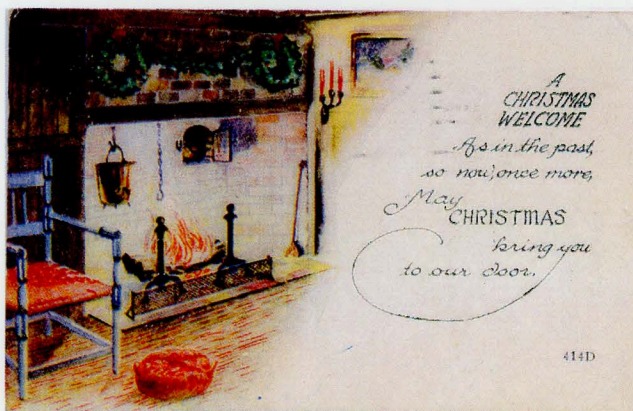 A
CHRISTMAS
WELCOME
As in the past,
so now, once more,
May
CHRISTMAS
bring you
to our door.
414D